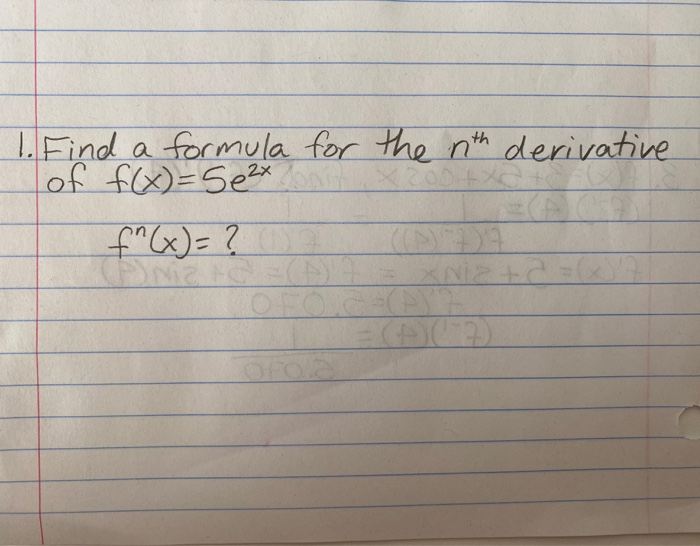 1. Find a formula for the nth derivative
of f(x)=5e^2x
f^n(x)= ?